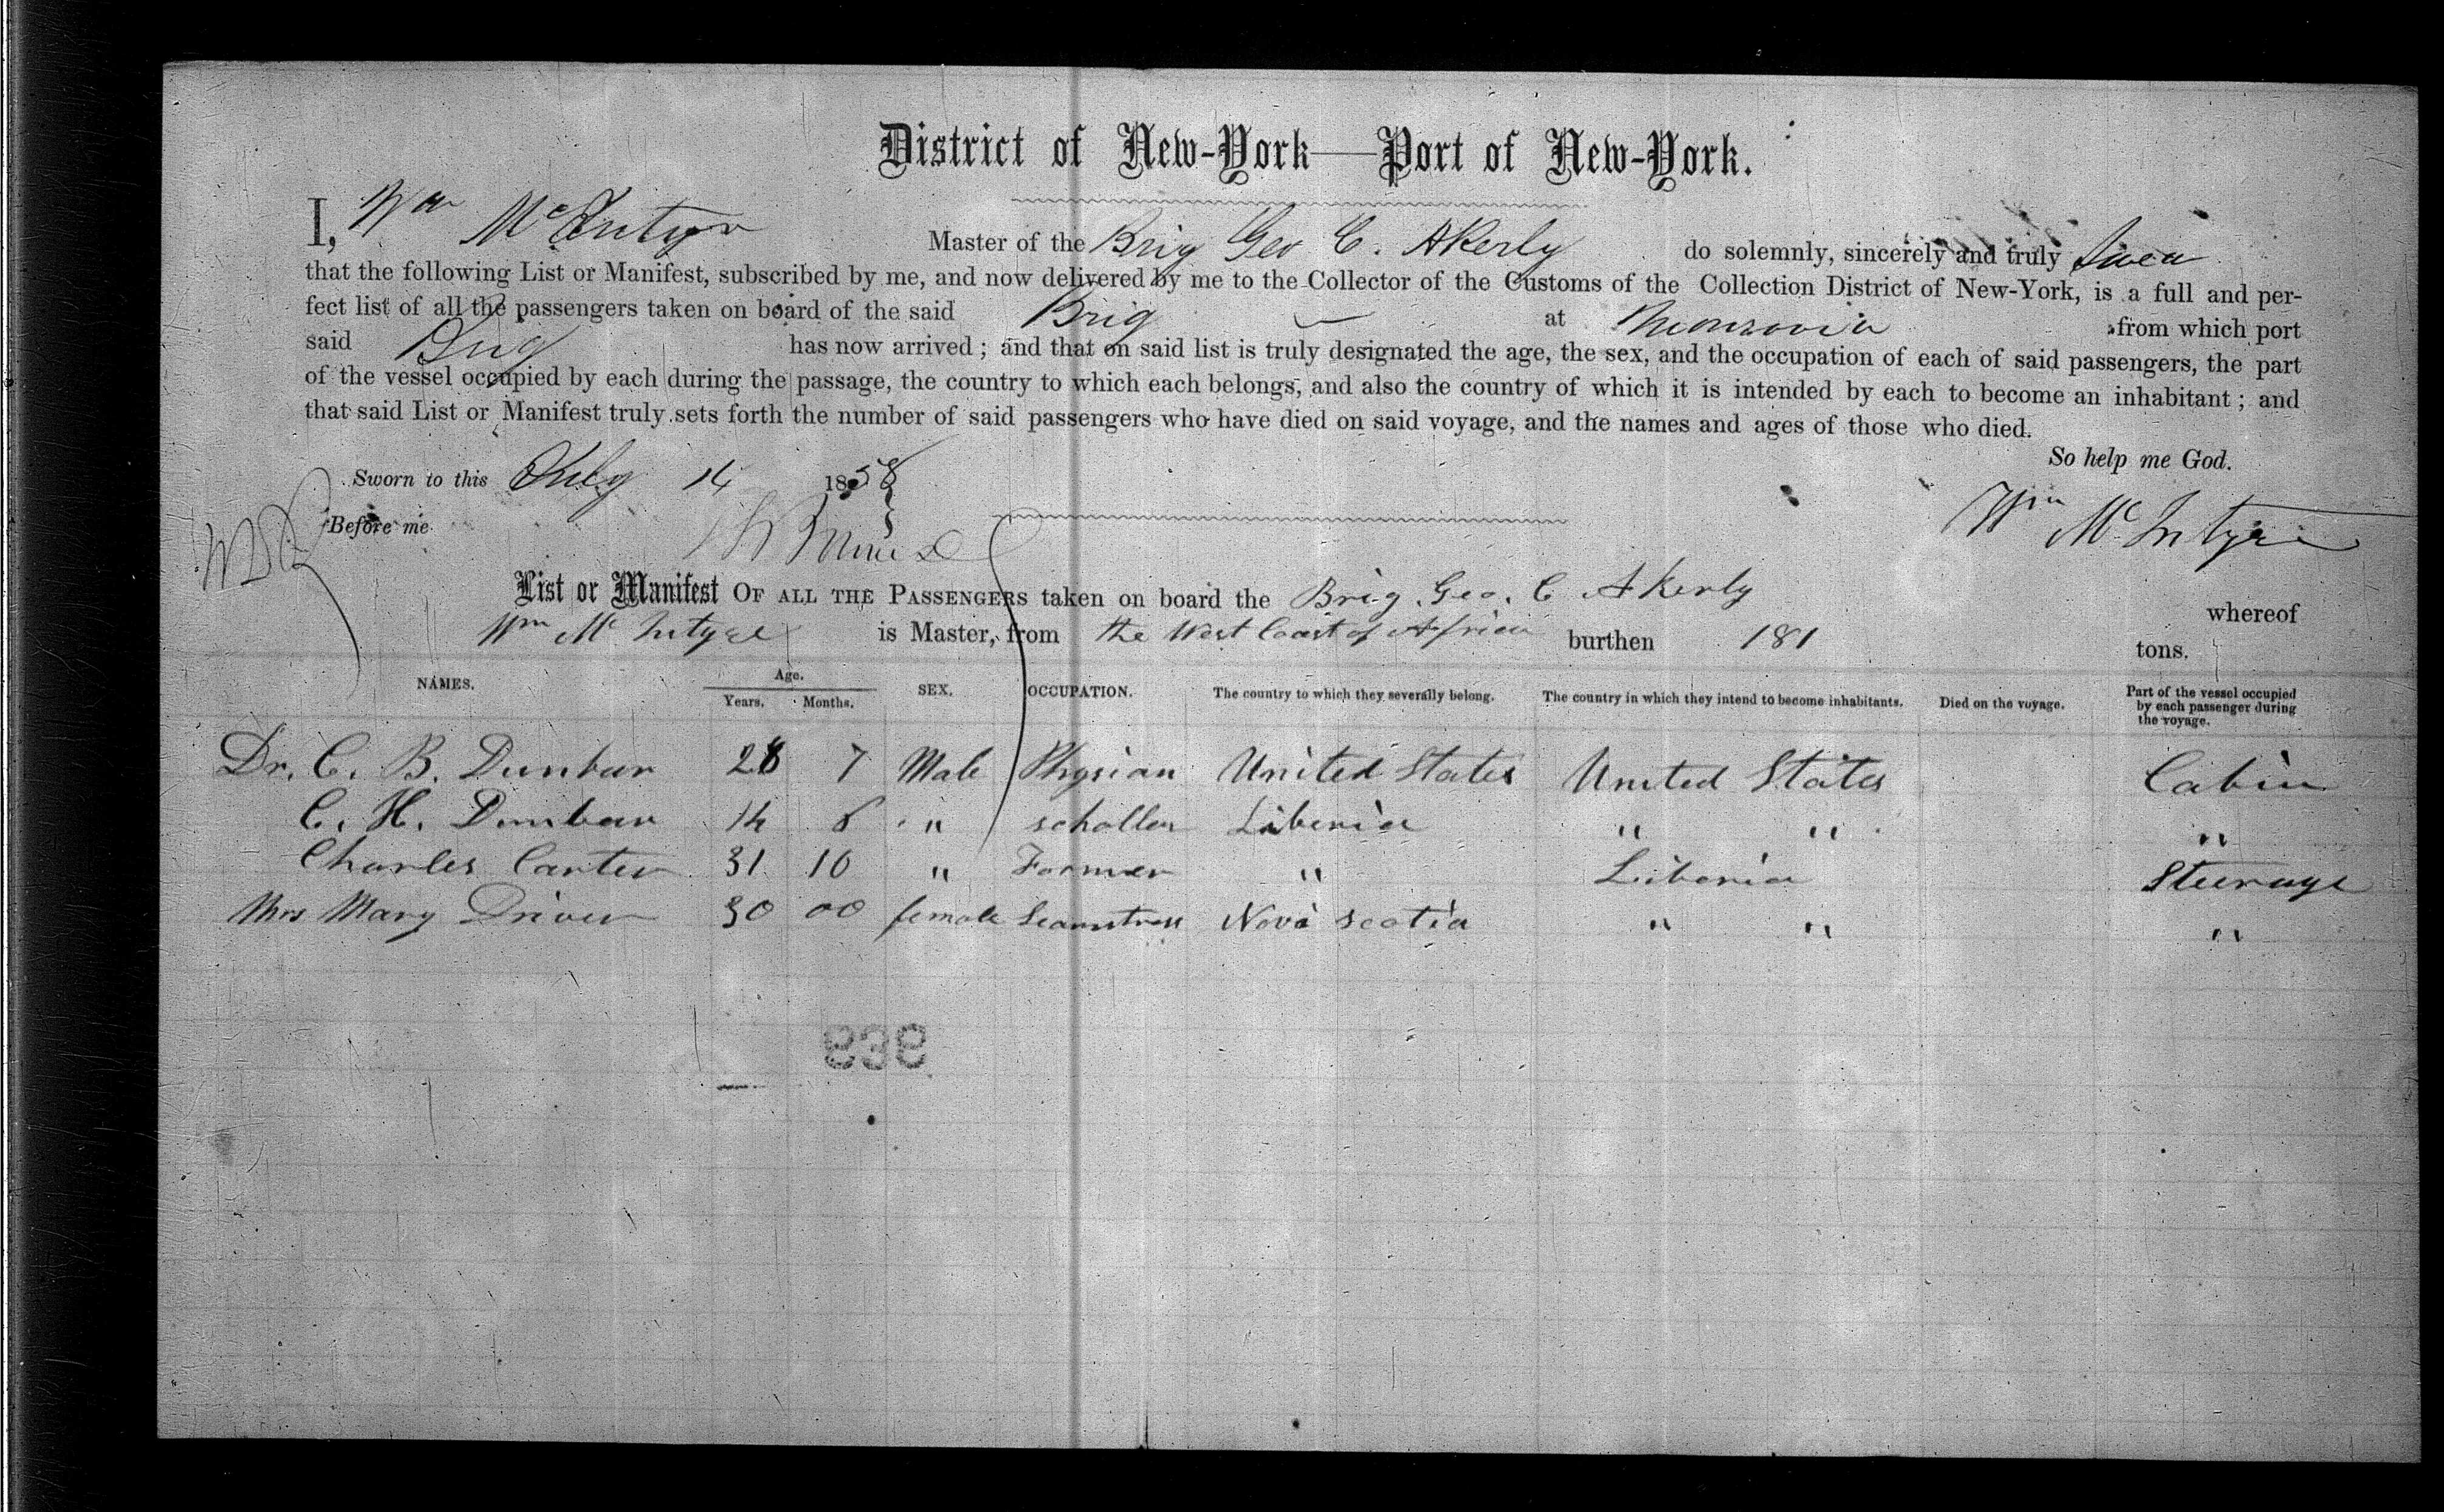 District of New-York—Port of New-York.
I, Wm McIntyre Master of the Brig Geo C. Akerly do solemnly, sincerely and truly swear
that the following List or Manifest, subscribed by me, and now delivered by me to the Collector of the Customs of the Collection District of New-York, is a full and per-
fect list of all the passengers taken on board of the said Brig at Monrovia from which port
said Brig has now arrived; and that on said list is truly designated the age, the sex, and the occupation of each of said passengers, the part
of the vessel occupied by each during the passage, the country to which each belongs, and also the country of which it is intended by each to become an inhabitant; and
that said List or Manifest truly sets forth the number of said passengers who have died on said voyage, and the names and ages of those who died.
So help me God.
Sworn to this July 14 1858
Wm McIntyre
Before me
List or Manifest OF ALL THE PASSENGERS taken on board the Brig Geo. C Akerly whereof
Wm McIntyre is Master, from the West Coast of Africa burthen 181 tons.
NAMES. Age. Years. Months. SEX. OCCUPATION. The country to which they severally belong. The country in which they intend to become inhabitants. Died on the voyage. Part of the vessel occupied by each passenger during the voyage.
Dr. C. B. Dunbar 28 7 Male Physian United States United States Cabin
C. H. Dunbar 14 8 " schollar Liberia " " "
Charles Carter 31 10 " Farmer " Liberia Steerage
Mrs Mary Driver 30 00 female Seamstress Nova Scotia " " "
838